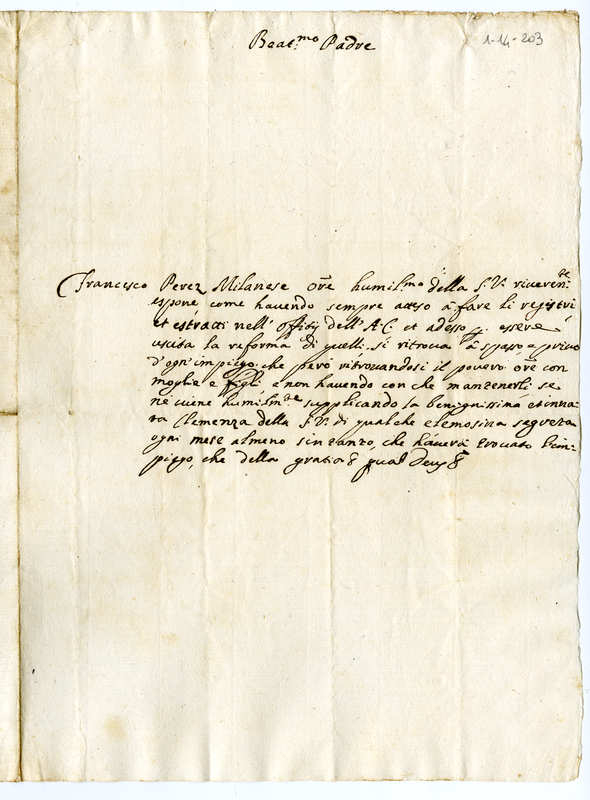 Beat.mo Padre
1-14-203
Francesco Perez Milanese ore humil.mo della S.V. riveren.te
espone come havendo sempre atteso à fare li registri
et estratti nell' offitij dell'A.C. et adesso p. essere
uscita la reforma di quelli si ritrova à spasso e privo
d'ogn'impiego, che però ritrovandosi il povero ore con
moglie e figli, e non havendo con che mantenerli se
ne viene humilm.te supplicando la benignissima et inna=
ta Clemenza della S.V. di qualche elemosina segreta
ogni mese almeno sin tanto, che haverà trovato l'im=
piego, che della gratia qua Deus